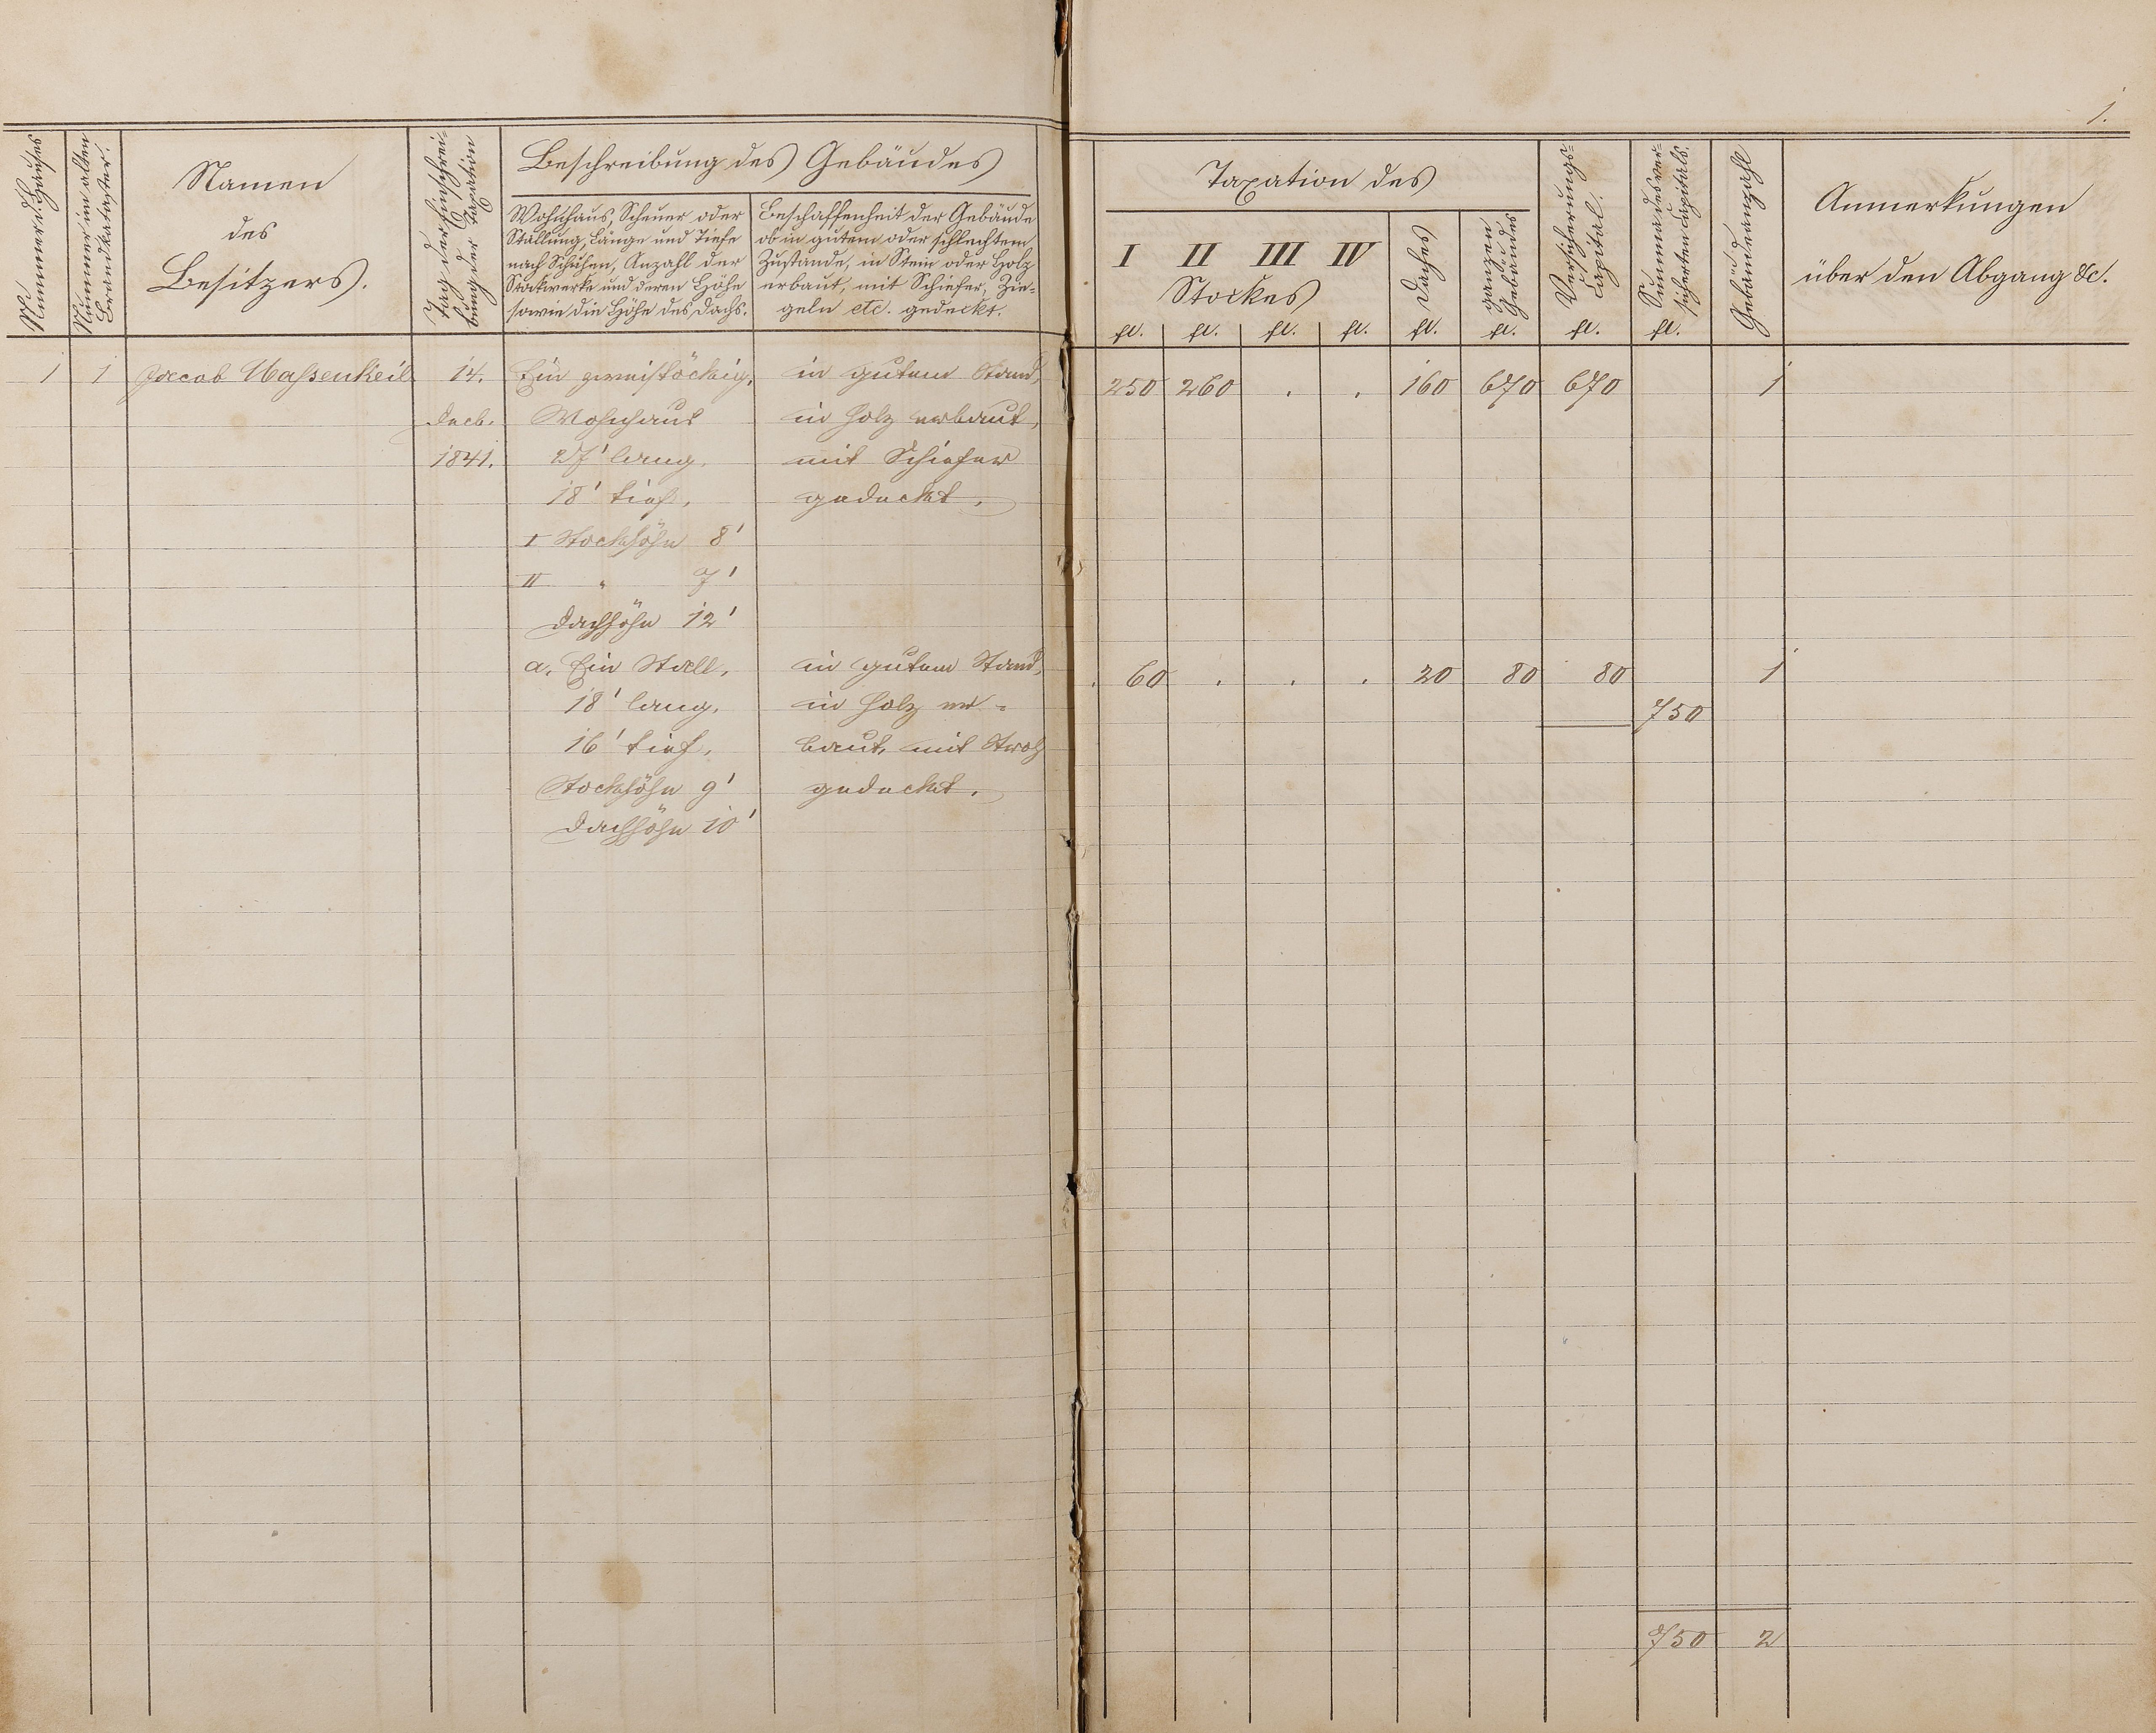 1.
Nummer d. Hauses
Nummer im alten
Brandkataster.
Namen
des
Besitzers.
Tag der Einschrei-
bung der Taxation
Beschreibung des Gebäudes
Wohnhaus, Scheuer oder
Stallung, Länge und Tiefe
nach Schuhen, Anzahl der
Stockwerke und deren Höhe
sowie die Höhe des Dachs.
Beschaffenheit der Gebäude
ob in gutem oder schlechtem
Zustande, in Stein oder Holz
erbaut, mit Schiefer, Zie-
geln etc. gedeckt.
Taxation des
I II III IV
Stockes
Daches
ganzen
Gebäudes
Versicherungs-
Capital.
Summa des ver-
sicherten Capitals.
Gebäudeanzahl
Anmerkungen
über den Abgang &c.
fl. fl. fl. fl. fl. fl. fl. fl.
1 1 Jacob Haßenkeil 14. Ein zweistöckig. in gutem Stand, 250 260 . . 160 670 670 1
Decb. Wohnhaus in Holz erbaut,
1841. 27' lang. mit Schiefer
18' tief. gedeckt.
I Stockhöhe 8'
II " 7'
Dachhöhe 12'
a. Ein Stall, in gutem Stand, 60 . . . 20 80 80 1
18' lang, in Holz er= 750
16' tief, baut, mit Stroh
Stockhöhe 9' gedeckt.
Dachhöhe 10'
750 2